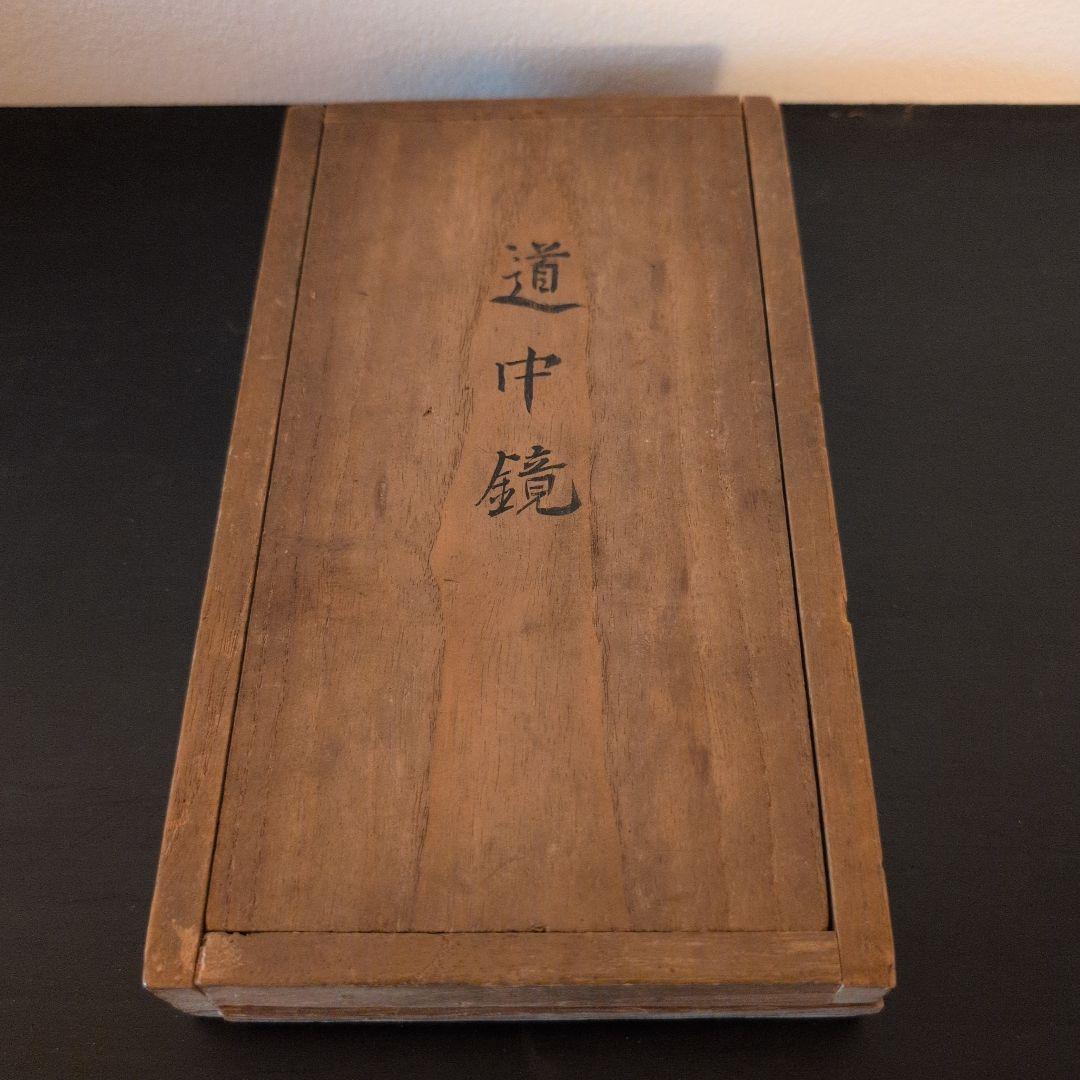 道中鏡